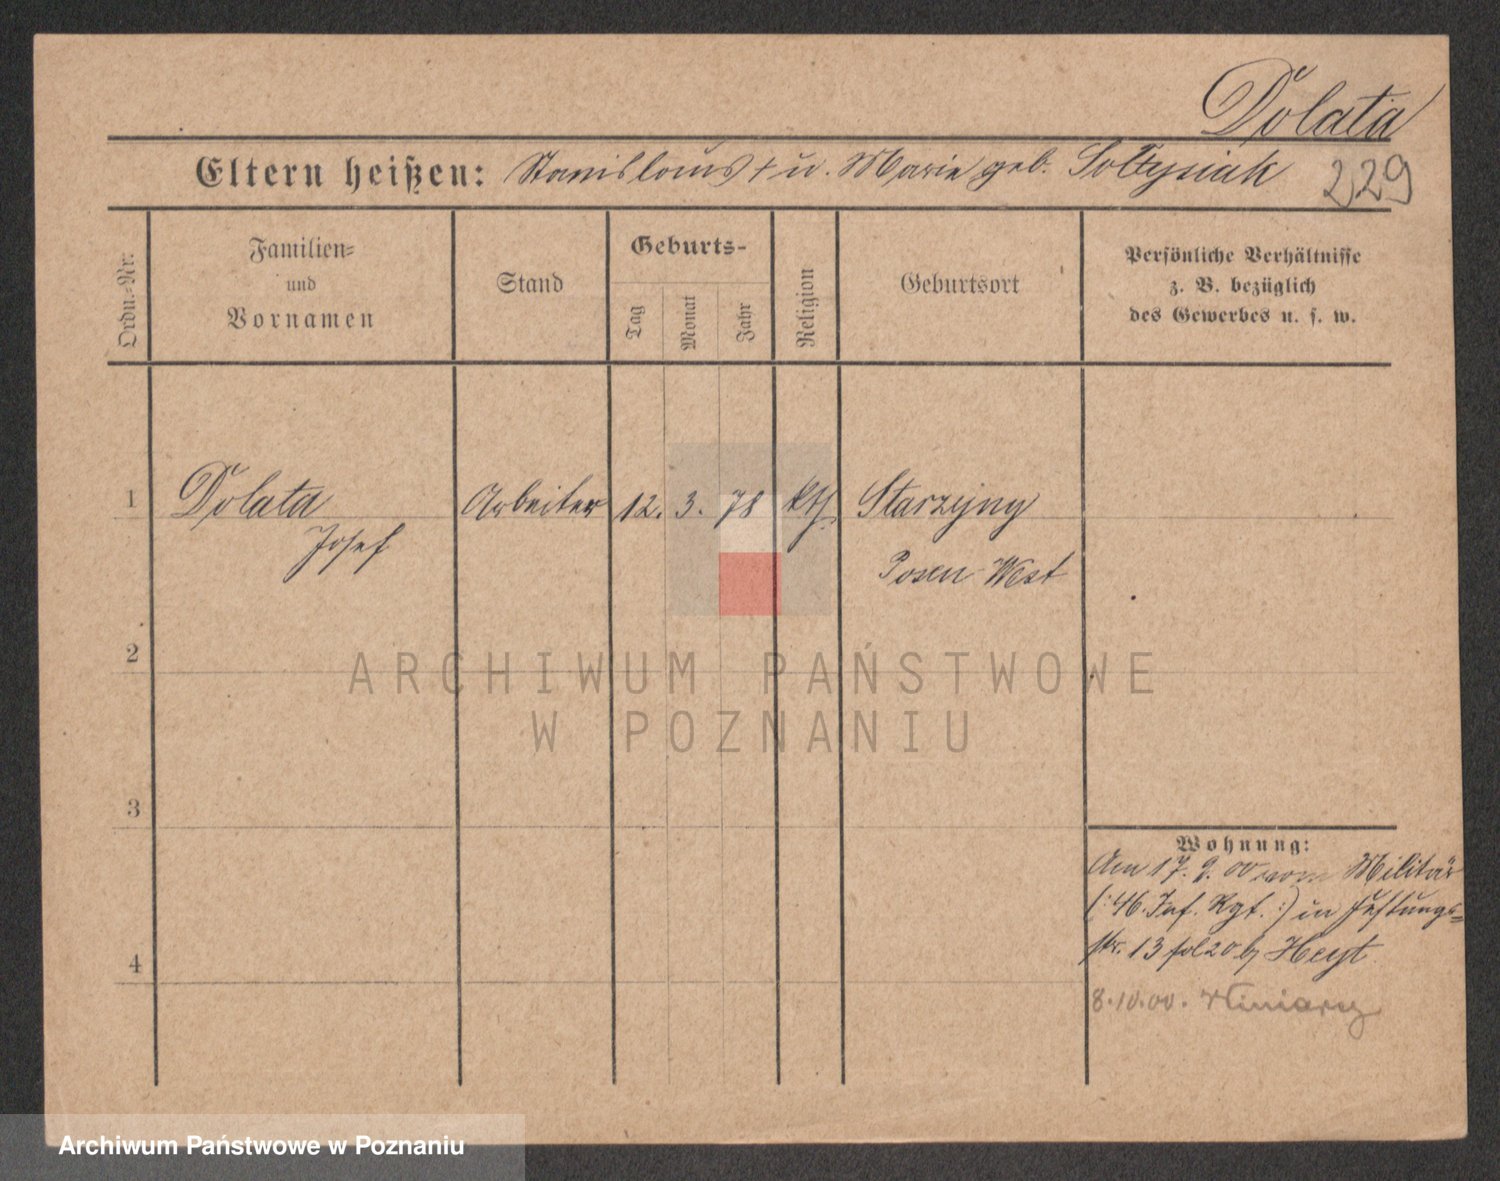 Dolata
Eltern heißen: Stanislaus + u. Marie geb. Sołtysiak
229
Ordn.-Nr.
Familien-
und
Vornamen
Stand
Geburts-
Tag
Monat
Jahr
Religion
Geburtsort
Persönliche Verhältnisse
z. B. bezüglich
des Gewerbes u. s. w.
1 Dolata Arbeiter 12. 3. 78 kth. Starzyny
Josef Posen West
2
ARCHIWUM PAŃSTWOWE
W POZNANIU
3
Wohnung:
Am 17. 9. 00 vom Militär
(:46. Inf. Rgt.:) in Festungs=
str. 13 b/ Heyt
4
8.10.00. Winiary
Archiwum Państwowe w Poznaniu